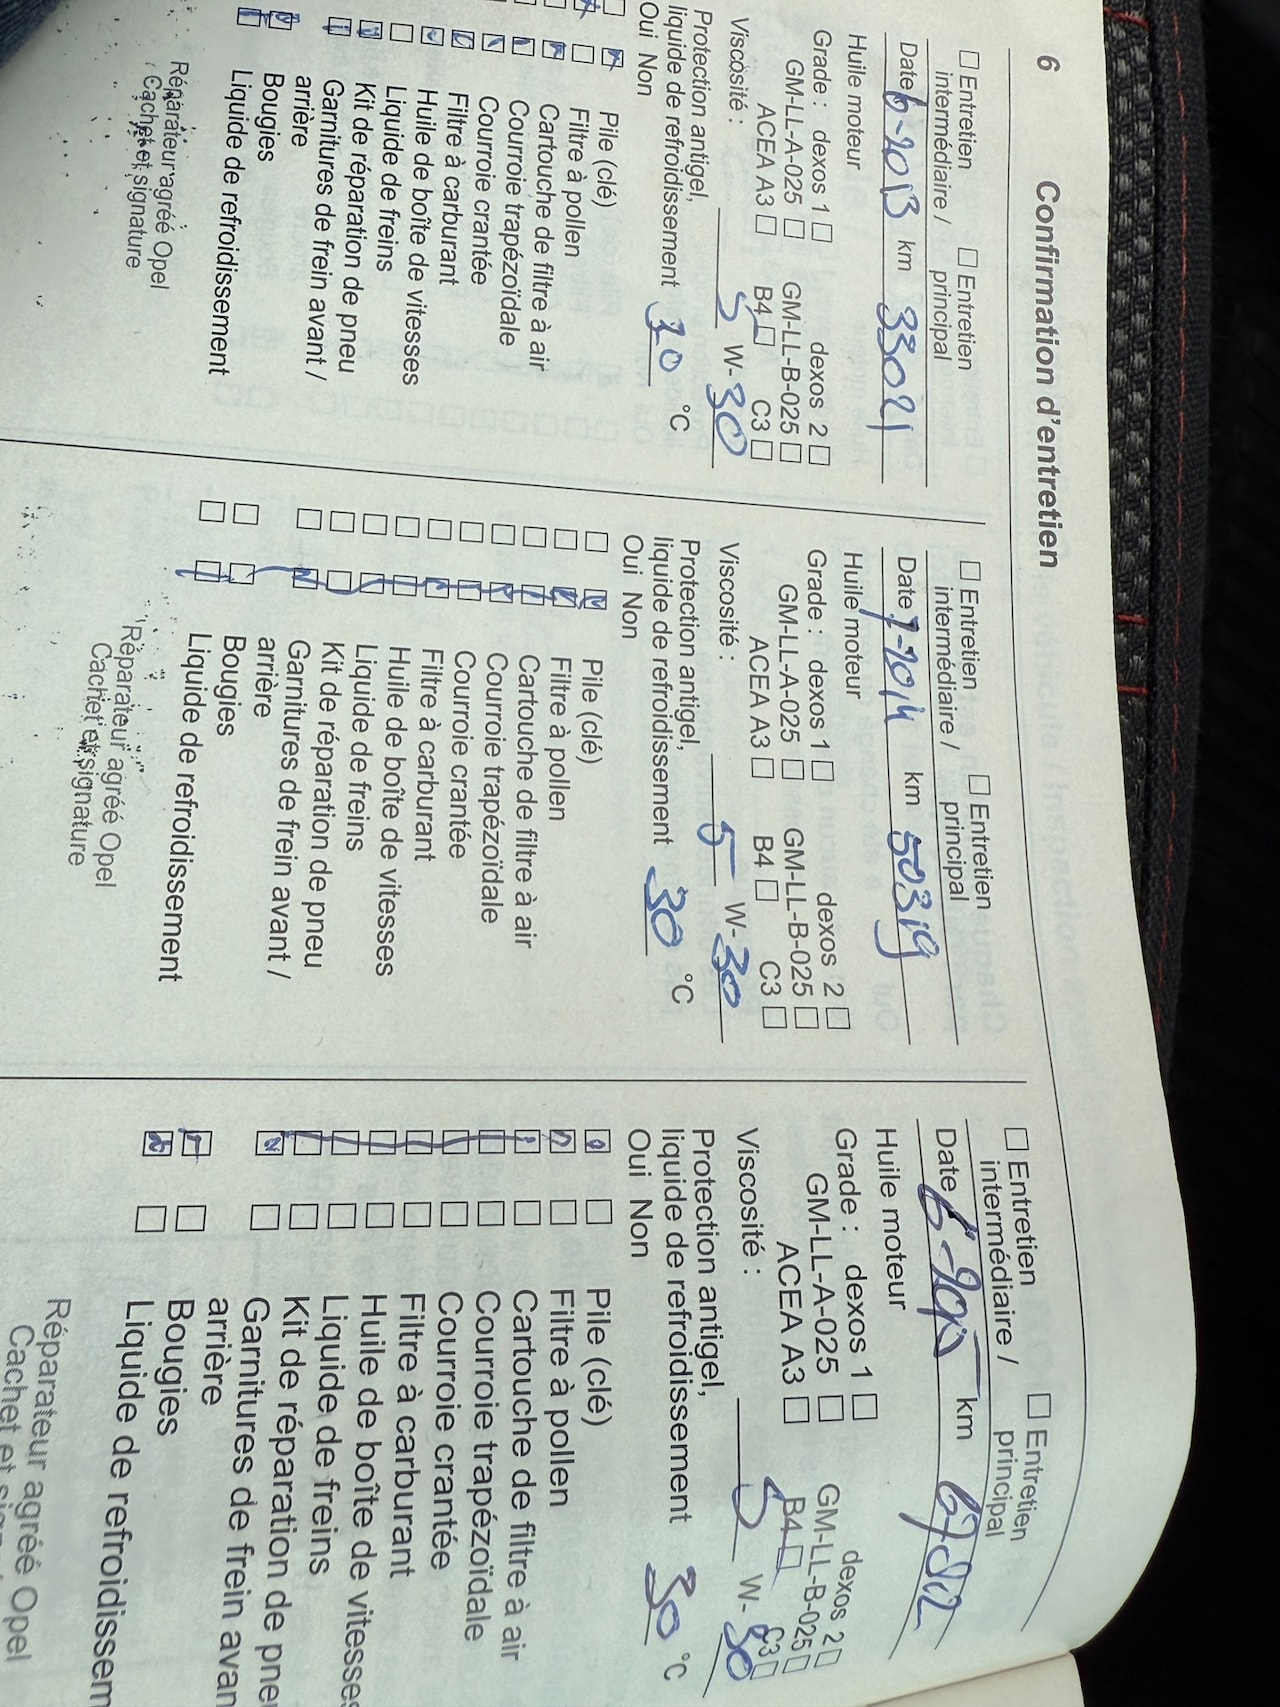 6 Confirmation d'entretien
☐ Entretien intermédiaire / ☐ Entretien principal
Date 6-2013 km 33021
Huile moteur
Grade : dexos 1 ☐ dexos 2 ☐
GM-LL-A-025 ☐ GM-LL-B-025 ☐
ACEA A3 ☐ B4 ☐ C3 ☐
Viscosité : 5 W-30
Protection antigel,
liquide de refroidissement 30 °C
Oui Non
Pile (clé)
Filtre à pollen
Cartouche de filtre à air
Courroie trapézoïdale
Courroie crantée
Filtre à carburant
Huile de boîte de vitesses
Liquide de freins
Kit de réparation de pneu
Garnitures de frein avant /
arrière
Bougies
Liquide de refroidissement
Réparateur agréé Opel
Cachet et signature
☐ Entretien intermédiaire / ☐ Entretien principal
Date 7-2014 km 50319
Huile moteur
Grade : dexos 1 ☐ dexos 2 ☐
GM-LL-A-025 ☐ GM-LL-B-025 ☐
ACEA A3 ☐ B4 ☐ C3 ☐
Viscosité : 5 W-30
Protection antigel,
liquide de refroidissement 30 °C
Oui Non
Pile (clé)
Filtre à pollen
Cartouche de filtre à air
Courroie trapézoïdale
Courroie crantée
Filtre à carburant
Huile de boîte de vitesses
Liquide de freins
Kit de réparation de pneu
Garnitures de frein avant /
arrière
Bougies
Liquide de refroidissement
Réparateur agréé Opel
Cachet et signature
☐ Entretien intermédiaire / ☐ Entretien principal
Date 6-2015 km
Huile moteur
Grade : dexos 1 ☐ dexos 2 ☐
GM-LL-A-025 ☐ GM-LL-B-025 ☐
ACEA A3 ☐ B4 ☐ C3 ☐
Viscosité : 5 W-30
Protection antigel,
liquide de refroidissement 30 °C
Oui Non
Pile (clé)
Filtre à pollen
Cartouche de filtre à air
Courroie trapézoïdale
Courroie crantée
Filtre à carburant
Huile de boîte de vitesses
Liquide de freins
Kit de réparation de pneu
Garnitures de frein avan
arrière
Bougies
Liquide de refroidissem
Réparateur agréé Opel
Cachet et